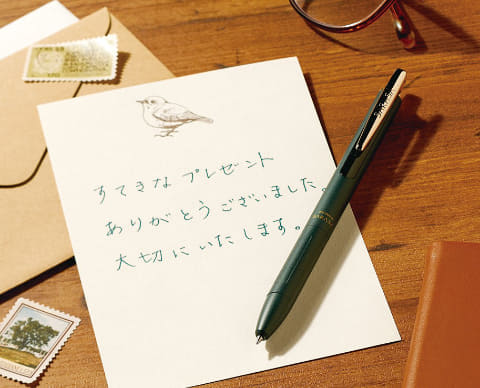 すてきな プレゼント
ありがとうございました。
大切にいたします。